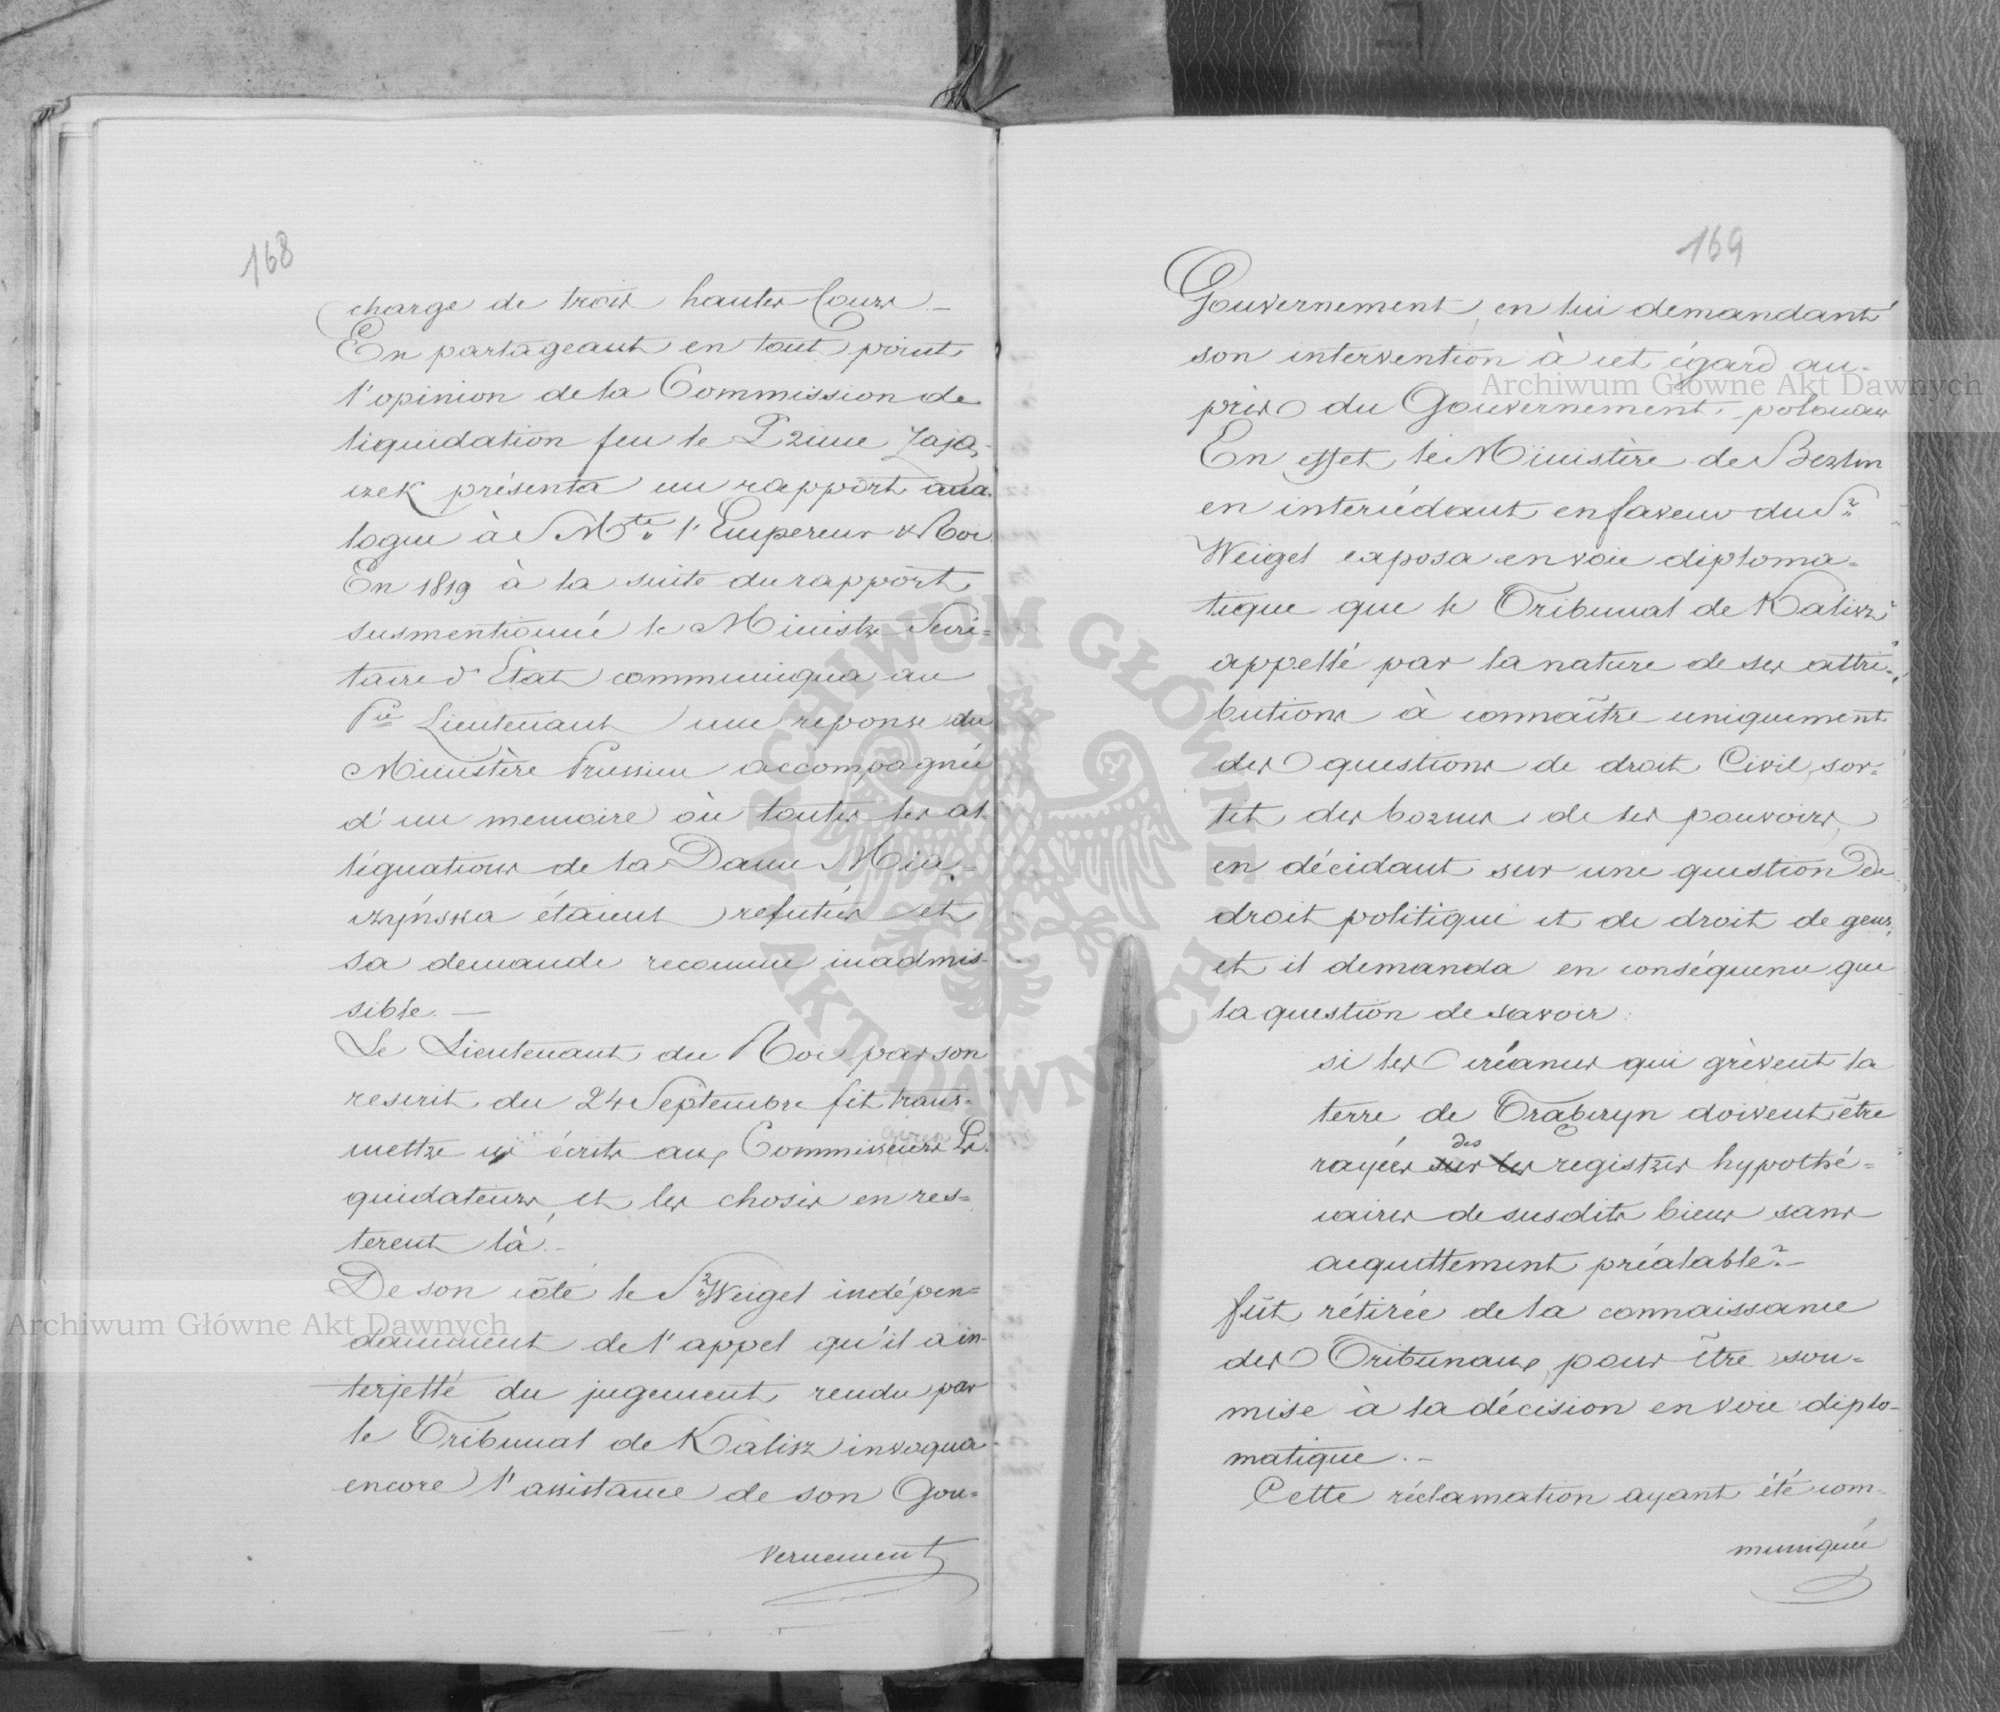 168
charge de trois hautes Cours.—
En partageant en tout point
l'opinion de la Commission de
liquidation feu le Prince Zają-
czek présenta un rapport ana-
logue à S. Mté l'Empereur & Roi.
En 1819 à la suite du rapport
susmentionné le Ministre Secré=
taire d'Etat communiqua au
Pce Lieutenant une reponse du
Ministère Prussien accompagnée
d'un memoire où toutes les al-
léguations de la Dame Mia-
czyńska étaient refutées et
sa demande reconnue inadmis-
sible.—
Le Lieutenant du Roi par son
rescrit du 24 Septembre fit trans-
mettre ces écrits aux Commissaires Li-
quidateurs et les choses en res=
terent là.—
De son côté le Sr Weigel indépen=
damment de l'appel qu'il a in-
terjetté du jugement rendu par
le Tribunal de Kalisz invoqua
encore l'assistance de son Gou-
vernement
169
Gouvernement, en lui demandant
son intervention à cet égard au-
près du Gouvernement polonais
En effet le Ministère de Berlin
en intercédant en faveur du Sr
Weigel exposa en voie diploma=
tique que le Tribunal de Kalisz
appellé par la nature de ses attri-
butions à connaître uniquement
des questions de droit Civil, sor-
tit des bornes de ses pouvoirs,
en décidant sur une question de
droit politique et de droit de gens,
et il demanda en conséquence que
la question de savoir:
si les créances qui grèvent la
terre de Trąbczyn doivent être
rayées sur les des registres hypothé=
caires de susdits biens sans
acquittement préalable?—
fût rétirée de la connaissance
des Tribunaux pour être sou-
mise à la décision en voie diplo-
matique.—
Cette réclamation ayant été com-
muniquée
Archiwum Główne Akt Dawnych
Archiwum Główne Akt Dawnych
ARCHIWUM GŁÓWNE AKT DAWNYCH